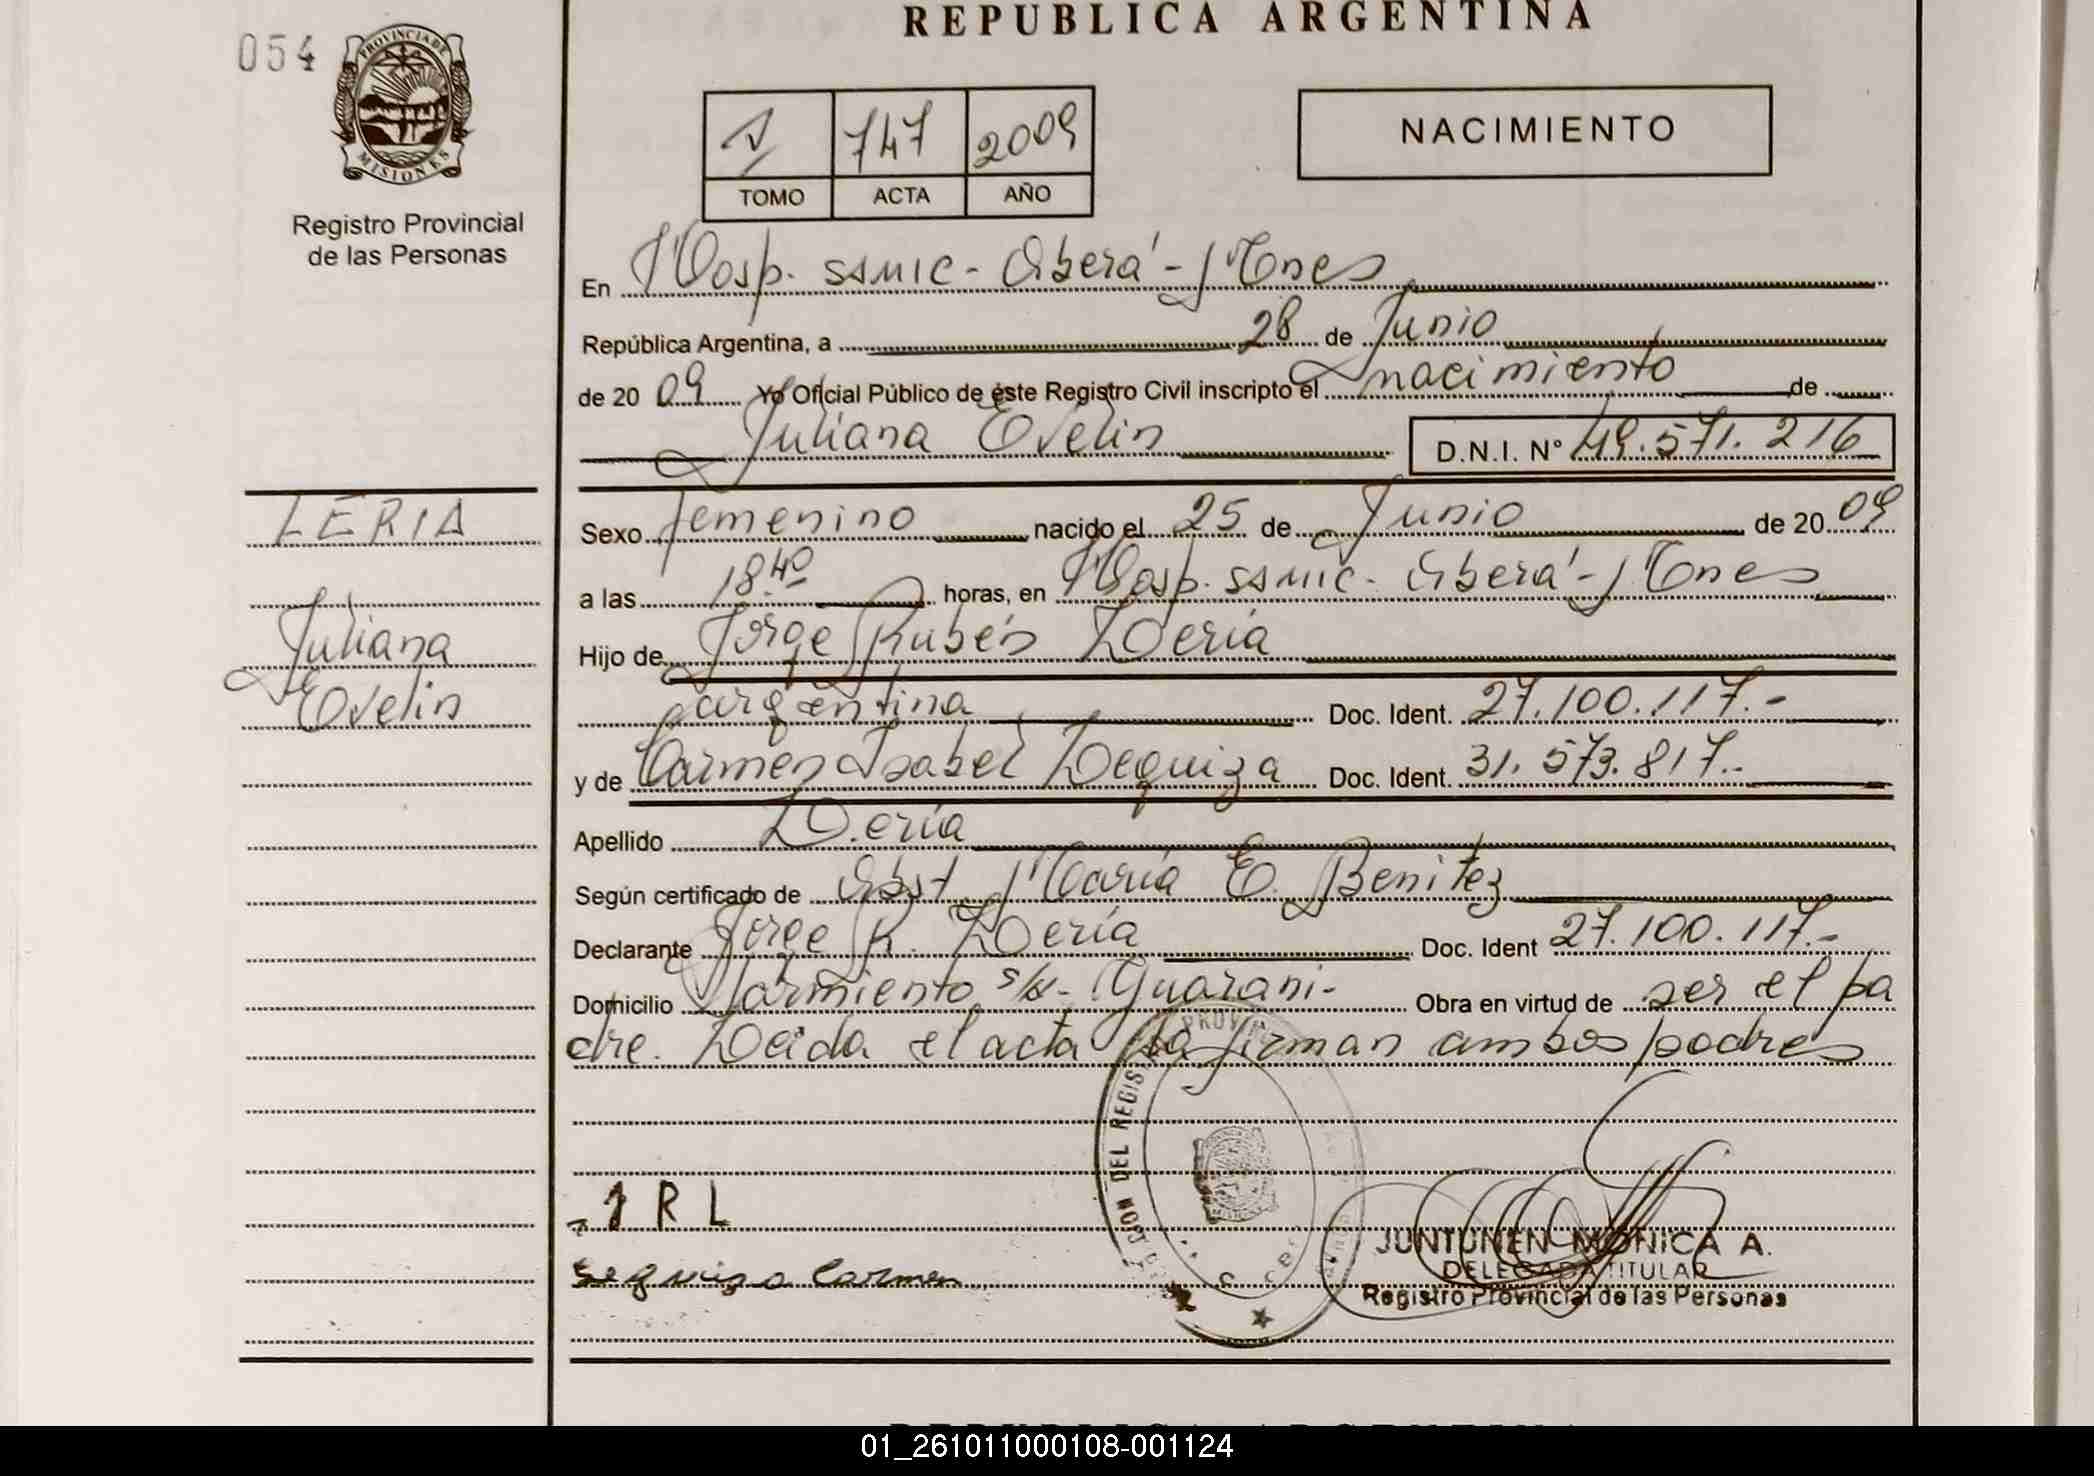 REPUBLICA ARGENTINA
054
PROVINCIA DE
MISIONES
Registro Provincial
de las Personas
1 747 2009
TOMO ACTA AÑO
NACIMIENTO
En Hosp. SAMIC - Oberá - Mnes
República Argentina, a 28 de Junio
de 20 09 Yo Oficial Público de éste Registro Civil inscripto el nacimiento de
Juliana Evelin D.N.I. N° 49.571.216
LERIA
Juliana
Evelin
Sexo femenino nacido el 25 de Junio de 20 09
a las 18.40 horas, en Hosp. SAMIC - Oberá - Mnes
Hijo de Jorge Rubén Leria
argentina Doc. Ident. 27.100.117.-
y de Carmen Isabel Sequiza Doc. Ident. 31.573.817.-
Apellido Leria
Según certificado de Obst María E. Benitez
Declarante Jorge R. Leria Doc. Ident 27.100.117.-
Domicilio Sarmiento s/n - Guarani - Obra en virtud de ser el pa
dre. Leida el acta la firman ambos padres
J R L
Sequiza Carmen
CION DEL REGIS PROVIN
JUNTUNEN MONICA A.
DELEGADA TITULAR
Registro Provincial de las Personas
REPUBLICA ARGENTINA
01_261011000108-001124